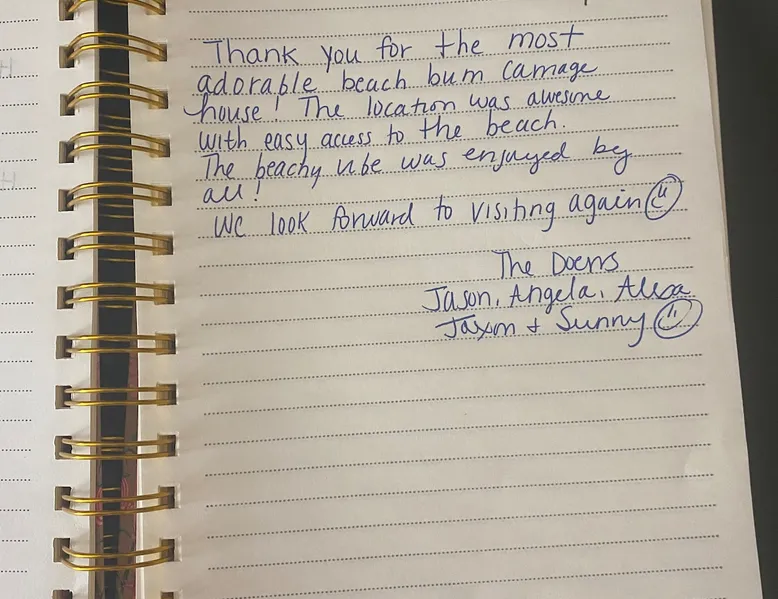 Thank you for the most
adorable beach bum carriage
house! The location was awesome
with easy access to the beach.
The beachy vibe was enjoyed by
all!
We look forward to visiting again
The Doerrs
Jason, Angela, Alexa
Jaxon + Sunny